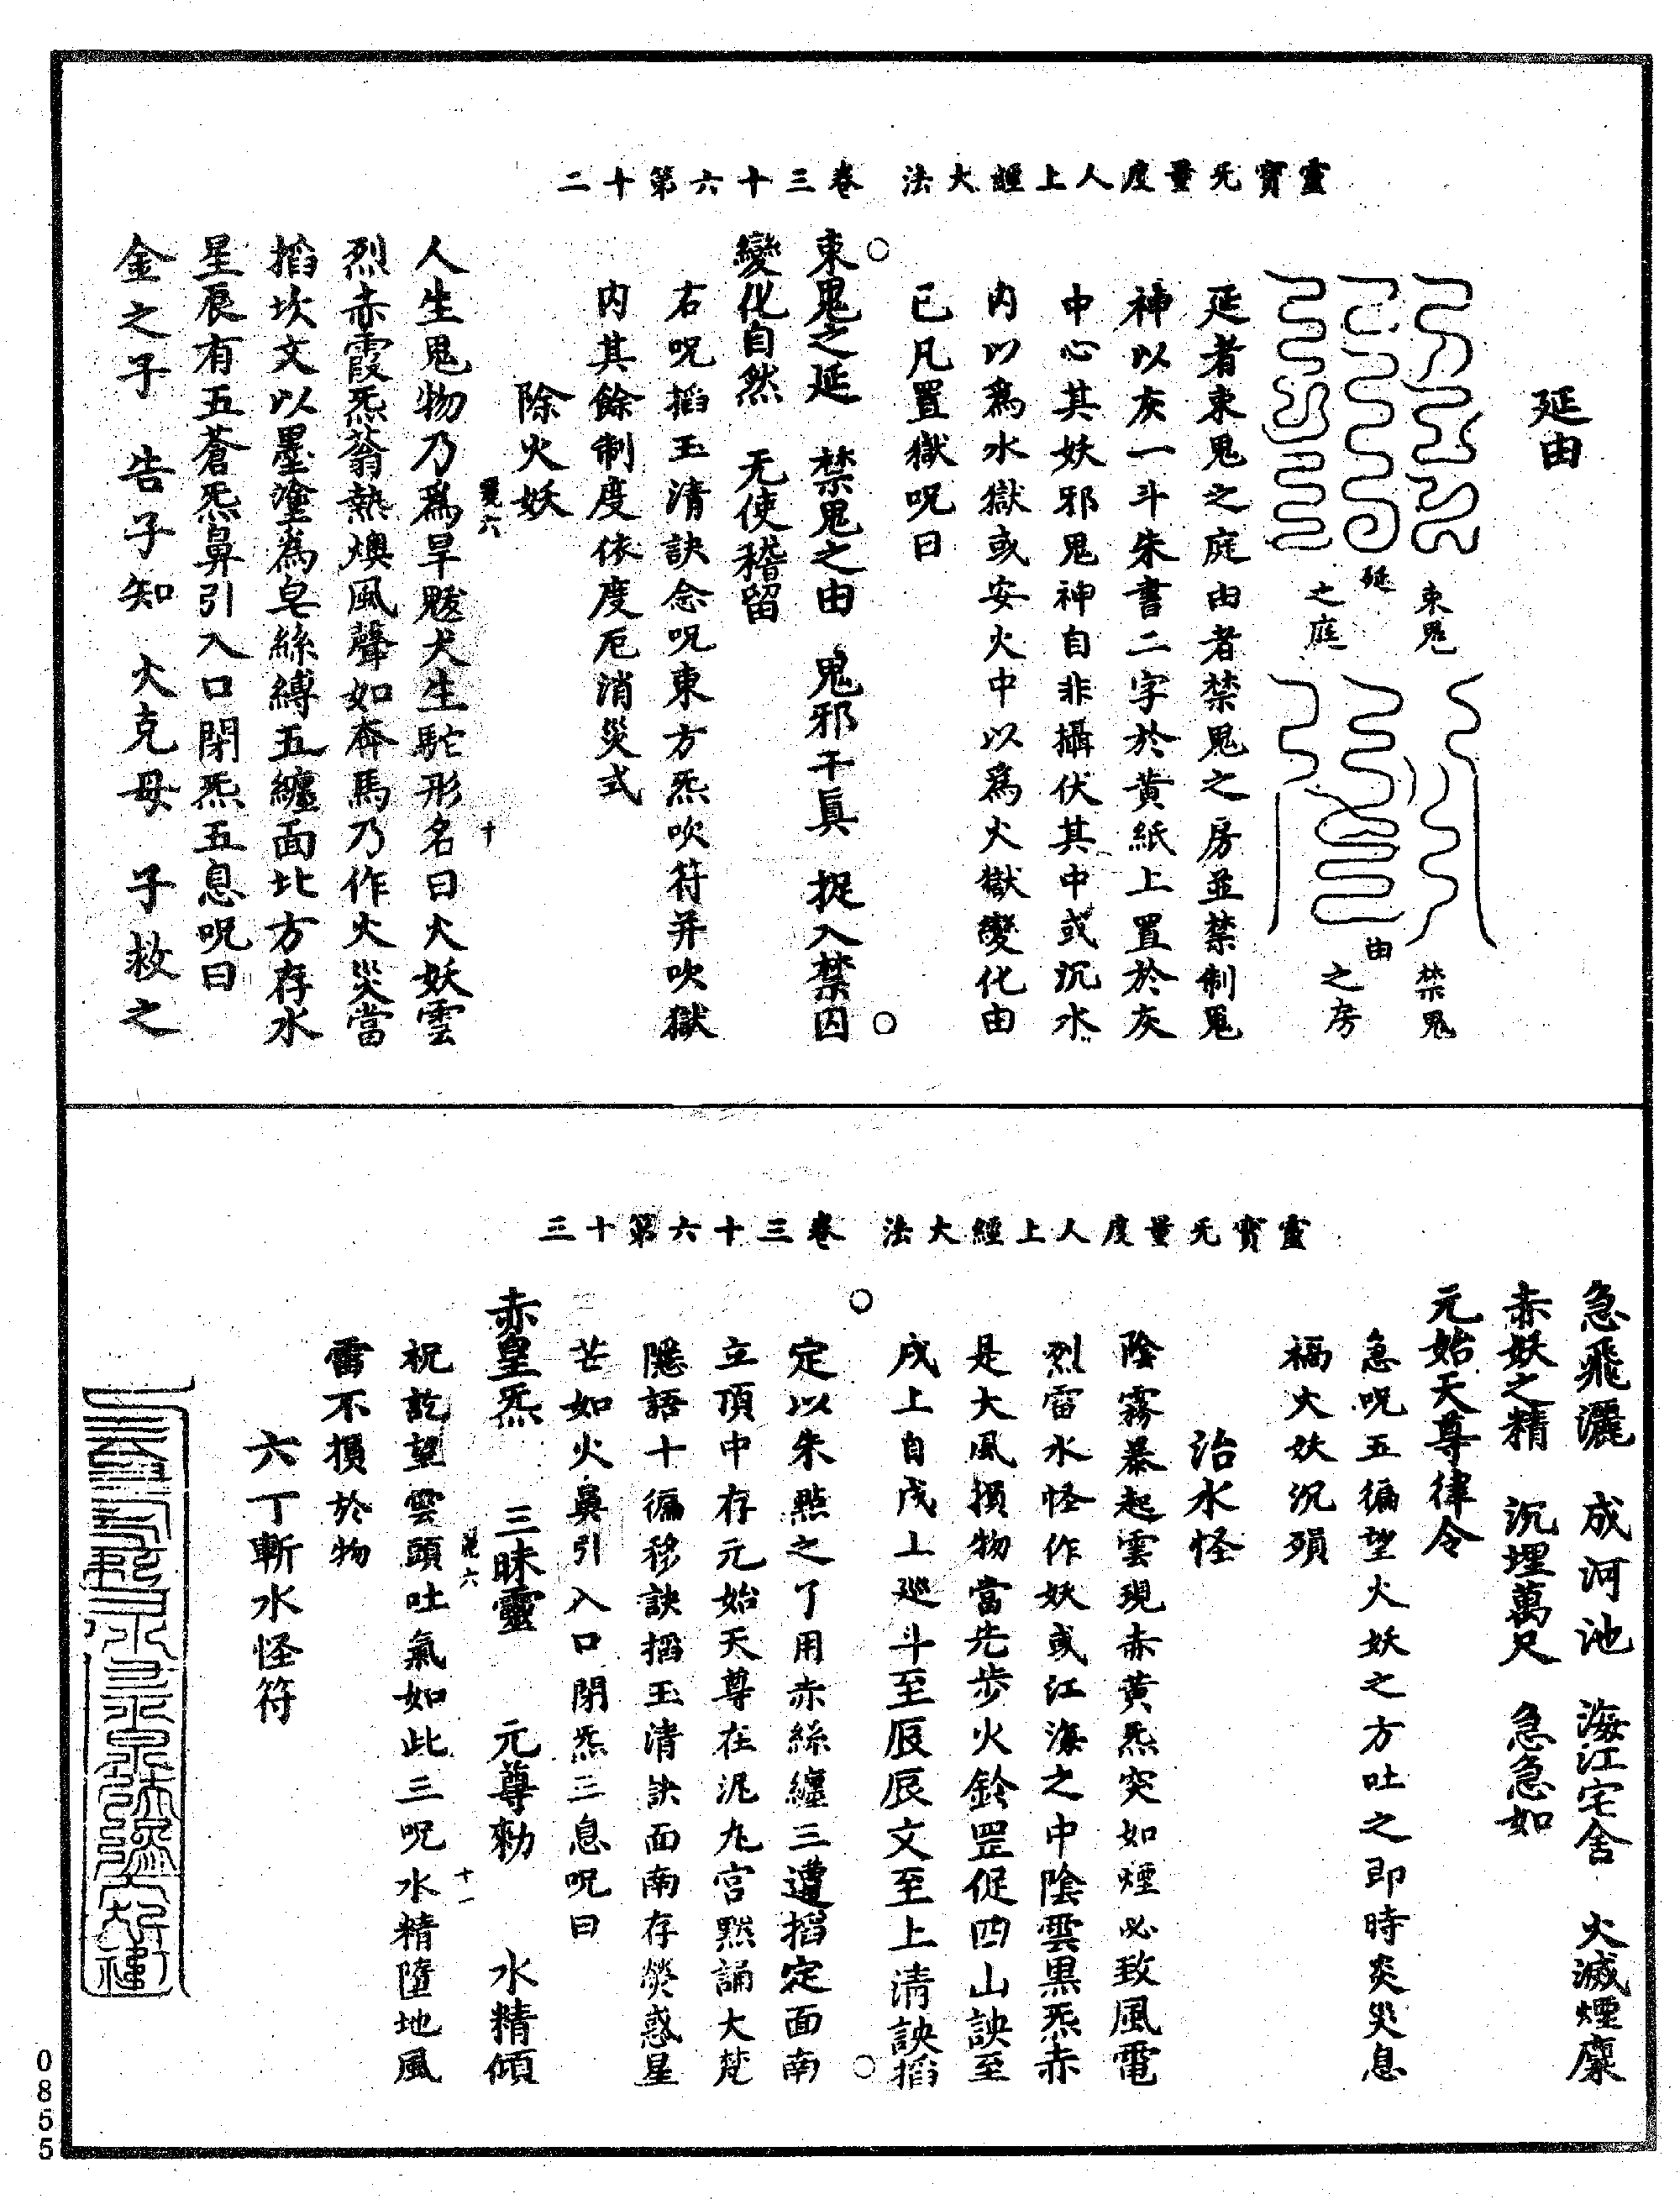 靈寳无量度人上經大法 卷三十六第十二
延由
束鬼
延
之庭
禁鬼
由
之房
延者束鬼之庭由者禁鬼之房並禁制鬼
神以灰一斗朱書二字於黄紙上置於灰
中心其妖邪鬼神自非攝伏其中或沉水
内以爲水獄或安火中以爲火獄變化由
已凡置獄呪曰
束鬼之延 禁鬼之由 鬼邪干眞 捉入禁囚
變化自然 无使稽留
右呪搯玉清訣念呪東方炁吹符并吹獄
内其餘制度依度厄消災式
除火妖
人生鬼物乃爲旱魃犬生駝形名曰火妖雲
烈赤霞炁蓊熱燠風聲如奔馬乃作火災當
搯坎文以墨塗為皂絲縛五纏面北方存水
星辰有五蒼炁鼻引入口閉炁五息呪曰
金之子 告子知 火克母 子救之
靈寳无量度人上經大法 卷三十六第十三
急飛灑 成河池 海江宅舍 火滅煙糜
赤妖之精 沉埋萬尺 急急如
元始天尊律令
急呪五徧望火妖之方吐之即時炎災息
禍火妖沉殞
治水怪
陰霧暴起雲現赤黄炁突如煙必致風電
烈雷水怪作妖或江海之中陰雲黒炁赤
是大風損物當先步火鈴罡促四山訣至
戌上自戌上巡斗至辰辰文至上清訣搯
定以朱點之了用赤絲纏三遭搯定面南
立頂中存元始天尊在泥丸宮黙誦大梵
隱語十徧移訣搯玉清訣面南存熒惑星
芒如火鼻引入口閉炁三息呪曰
赤皇炁 三昧靈 元尊勑 水精傾
祝訖望雲頭吐氣如此三呪水精墮地風
雷不損於物
六丁斬水怪符
0855